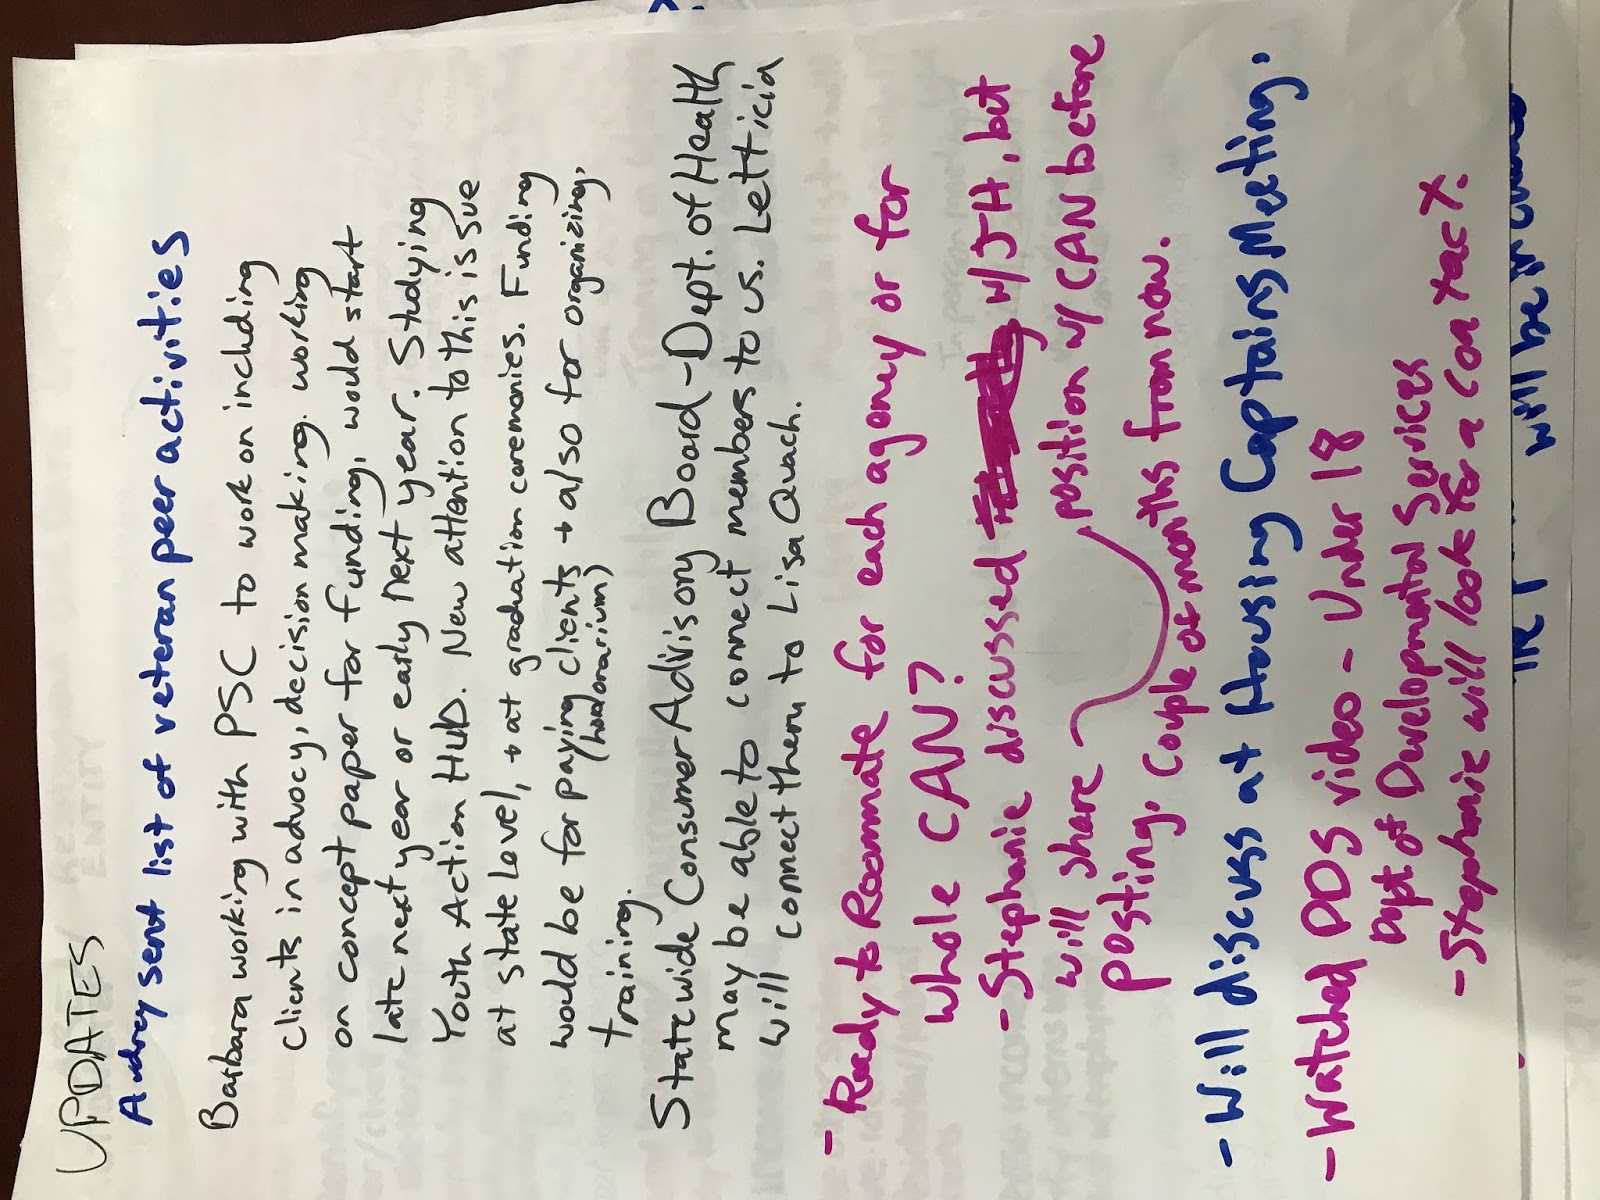 UPDATES
Audrey sent list of veteran peer activities
Barbara working with PSC to work on including
clients in advocy, decision making. working
on concept paper for funding, would start
late next year or early next year. Studying
Youth Action Hub. New attention to this issue
at state level, + at graduation ceremonies. Funding
would be for paying clients + also for organizing,
(honorarium)
training.
Statewide Consumer Advisory Board - Dept. of Health
may be able to connect members to us. Letticia
will connect them to Lisa Quach.
- Ready to Roommate for each agency or for
whole CAN?
- Stephanie discussed w/ JH, but
will share position w/ CAN before
posting. Couple of months from now.
- Will discuss at Housing Captains Meeting.
- Watched PDS video - Under 18
Dept of Developmental Services
- Stephanie will look for a contact.
will be in